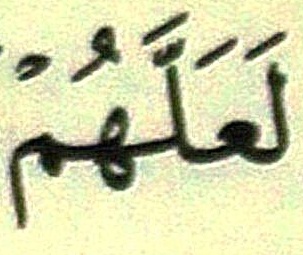 لَعَلَّهُمْ